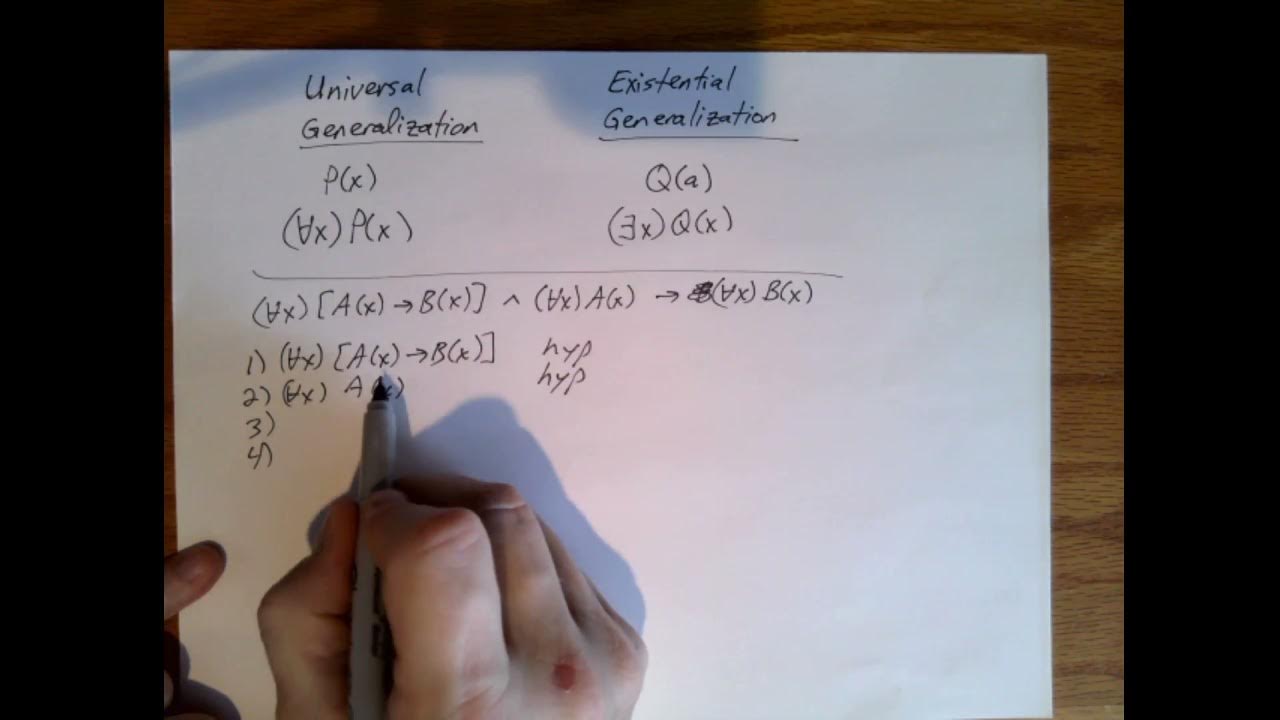 Universal Generalization
P(x)
(∀x) P(x)
Existential Generalization
Q(a)
(∃x) Q(x)
(∀x) [A(x) → B(x)] ∧ (∀x) A(x) → (∀x) B(x)
1) (∀x) [A(x) → B(x)] hyp
2) (∀x) A(x) hyp
3)
4)